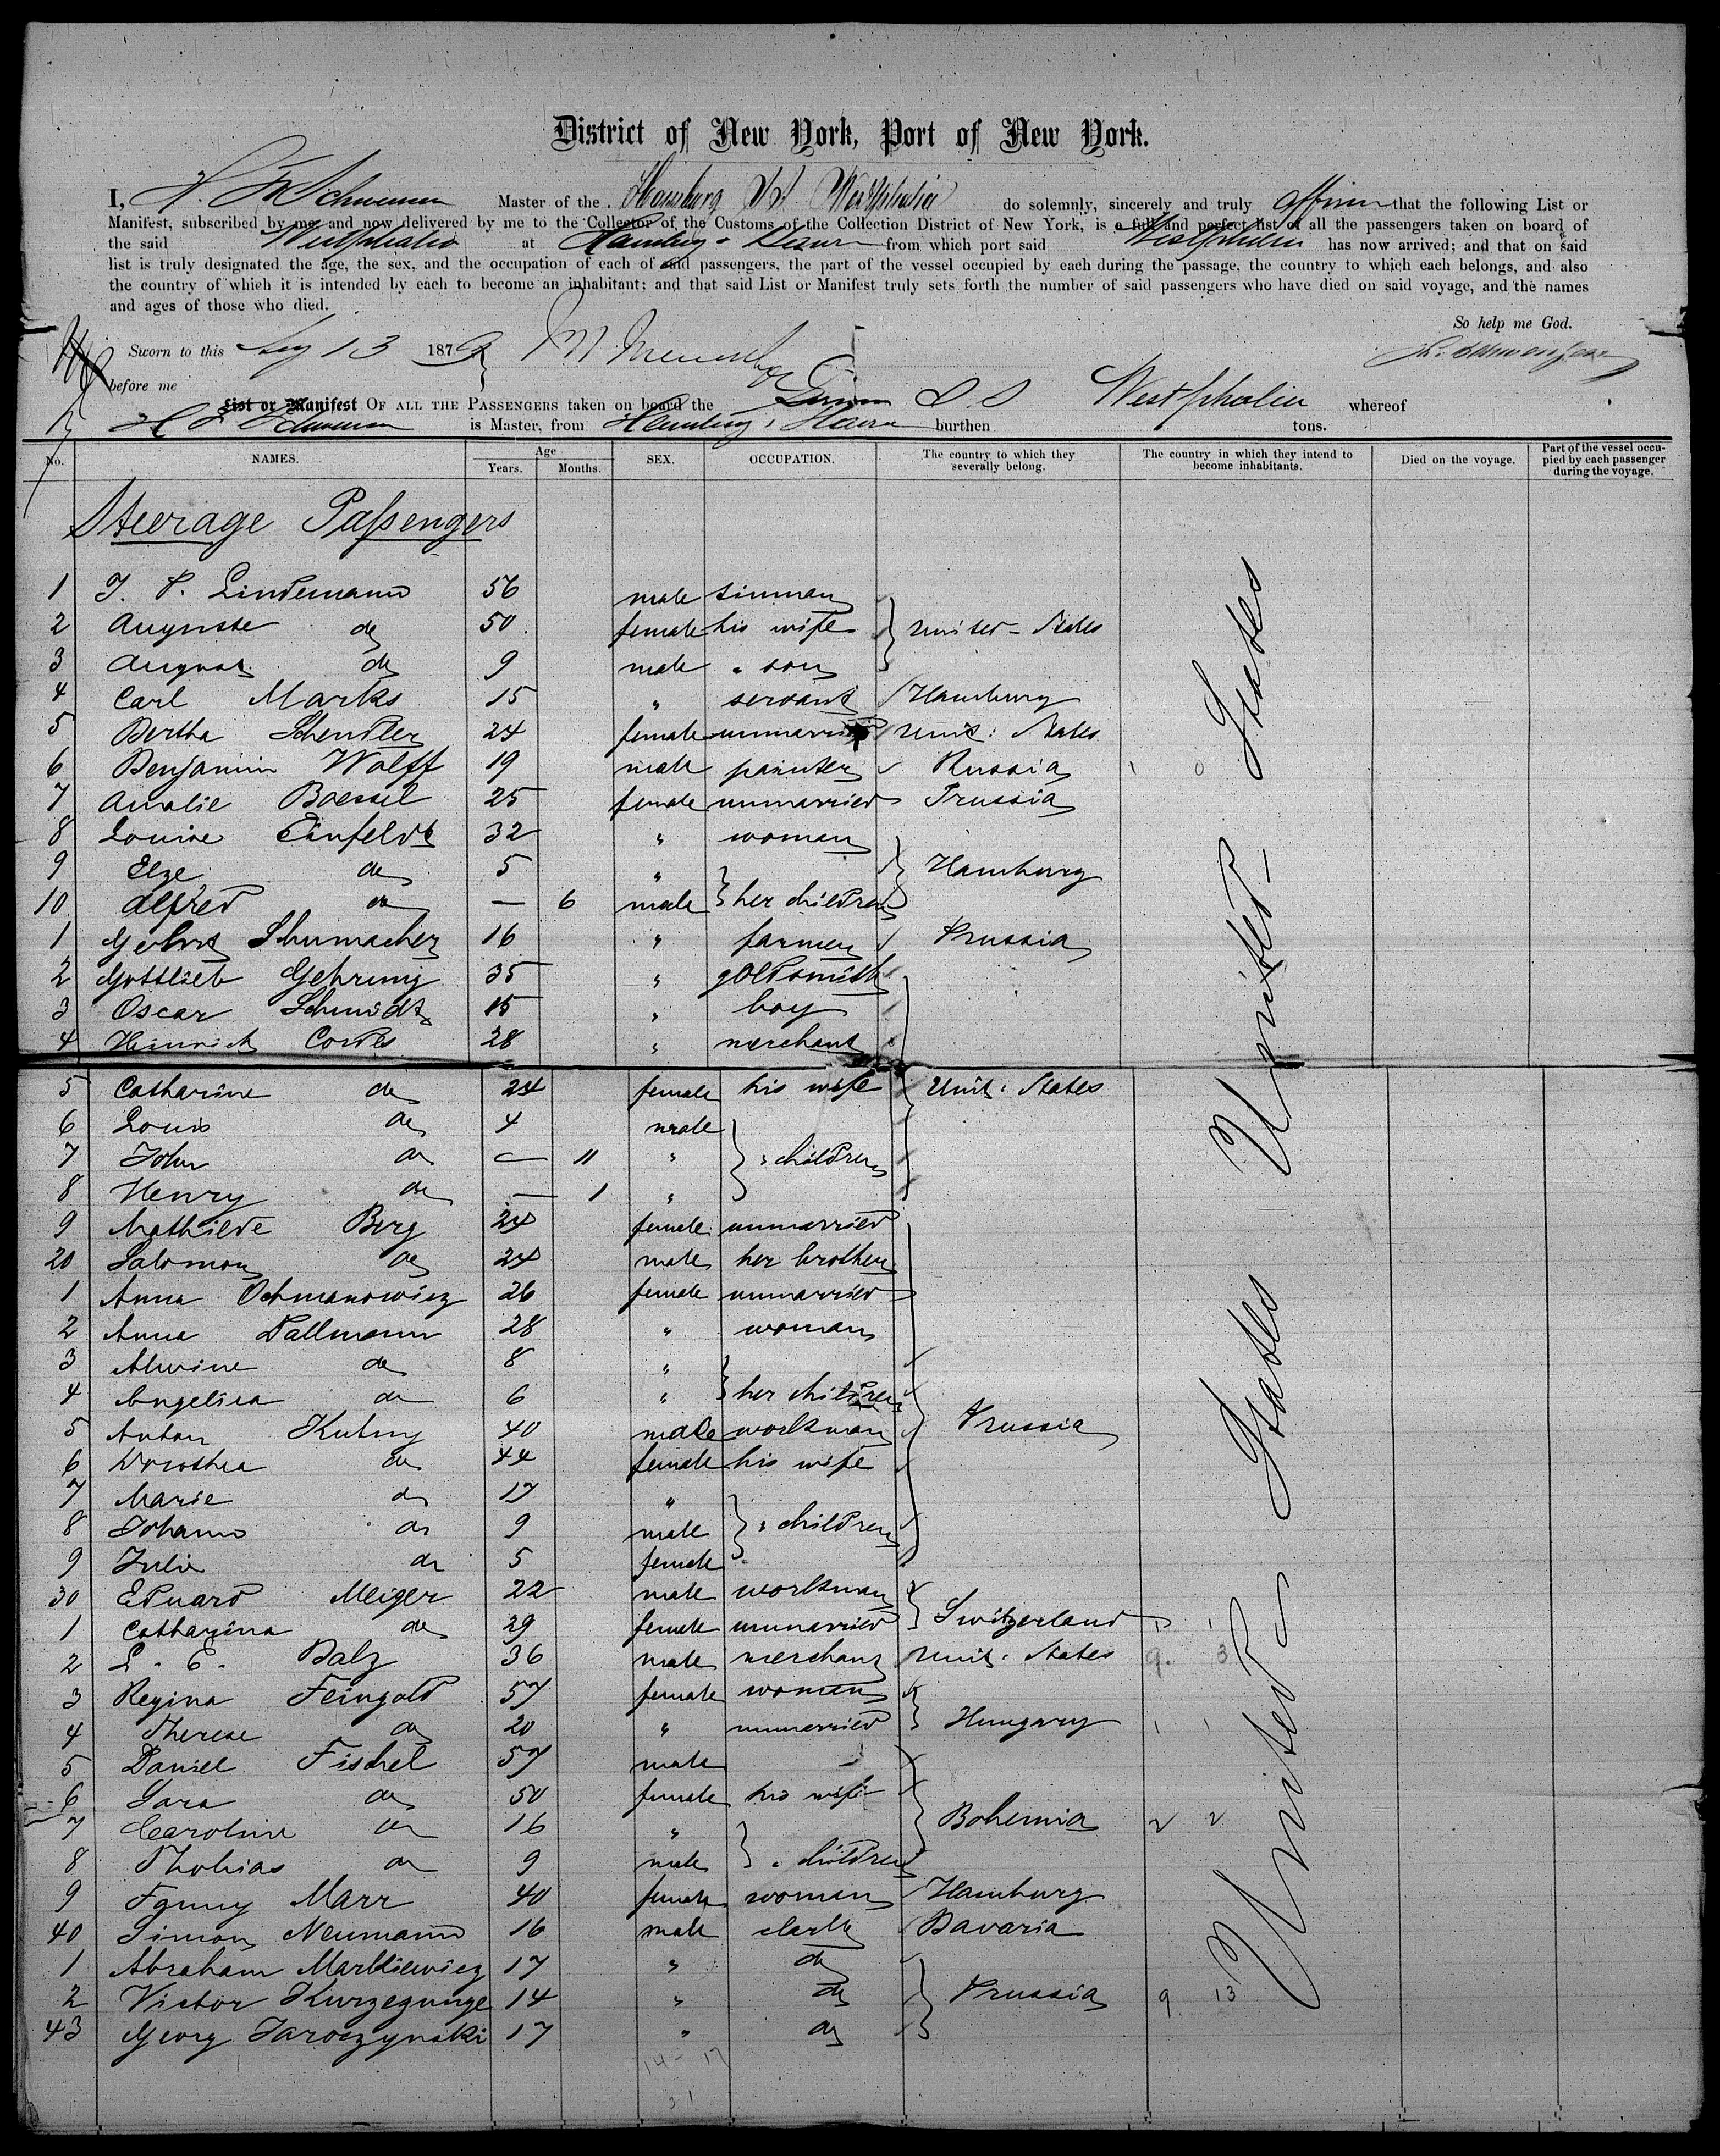 District of New York, Port of New York.
I, Master of the Hamburg SS Westphalia do solemnly, sincerely and truly affirm that the following List or
Manifest, subscribed by me and now delivered by me to the Collector of the Customs of the Collection District of New York, is a full and perfect list of all the passengers taken on board of
the said Westphalia at Hamburg & Havre from which port said Westphalia has now arrived; and that on said
list is truly designated the age, the sex, and the occupation of each of said passengers, the part of the vessel occupied by each during the passage, the country to which each belongs, and also
the country of which it is intended by each to become an inhabitant; and that said List or Manifest truly sets forth the number of said passengers who have died on said voyage, and the names
and ages of those who died.
So help me God.
Sworn to this Aug 13 1879
before me
List or Manifest OF ALL THE PASSENGERS taken on board the German SS Westphalia whereof
is Master, from Hamburg & Havre burthen tons.
No. NAMES. Age Years. Months. SEX. OCCUPATION. The country to which they severally belong. The country in which they intend to become inhabitants. Died on the voyage. Part of the vessel occupied by each passenger during the voyage.
Steerage Passengers
1 J. P. Lindemann 56 male tinman
2 Auguste do 50 female his wife United-States
3 August do 9 male " son
4 Carl Marks 15 " servant Hamburg
5 Bertha Schendler 24 female unmarried Unit: States
6 Benjamin Wolff 19 male painter Russia
7 Amalie Baessel 25 female unmarried Prussia
8 Louise Einfeldt 32 " woman
9 Elze do 5 " Hamburg
10 Alfred do — 6 male her children
1 Schumacher 16 " farmer Prussia
2 Gottlieb Gehring 35 " goldsmith
3 Oscar Schmidt 15 " boy
4 Heinrich Cordes 28 " merchant
5 Catharine do 24 female his wife Unit. States
6 Louis do 4 male
7 John do — 11 " " children
8 Henry do — 1 "
9 Mathilde Berg 24 female unmarried
20 Salomon do 24 male her brother
1 Anna Ochmanowicz 26 female unmarried
2 Anna Dallmann 28 " woman
3 Alwine do 8 "
4 Angelica do 6 " her children
5 Anton Kutny 40 male workman Prussia
6 Dorothea do 44 female his wife
7 Marie do 17 "
8 Johann do 9 male " children
9 Julie do 5 female
30 Eduard Meiger 22 male workman
1 Catharina do 29 female unmarried Switzerland 1 1
2 L. E. Balz 36 male merchant Unit. States 9. 3
3 Regina Feingold 57 female woman
4 Therese do 20 " unmarried Hungary 1 1
5 Daniel Fischel 57 male —
6 Sara do 50 female his wife
7 Caroline do 16 " Bohemia 2 2
8 Thobias do 9 male " children
9 Fanny Marr 40 female woman Hamburg
40 Simon Neumann 16 male clark Bavaria
1 Abraham Markiewicz 17 " do
2 Victor Kurzegunge 14 " do Prussia 9 13
43 Georg Jaroczynski 17 " do
United States
United States
14 - 17
31